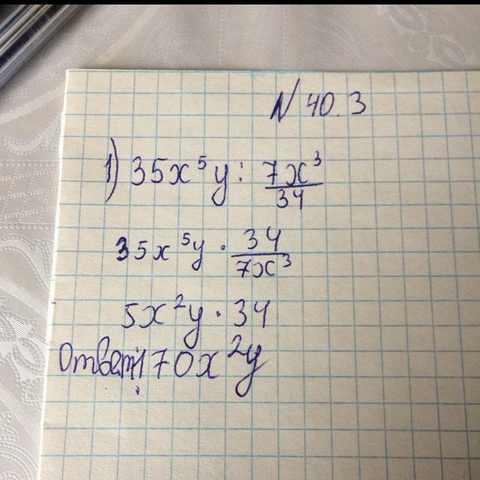 N 40.3
1) 35x⁵y : 7x³/34
35x⁵y · 34/7x³
5x²y · 34
Ответ: 170x²y